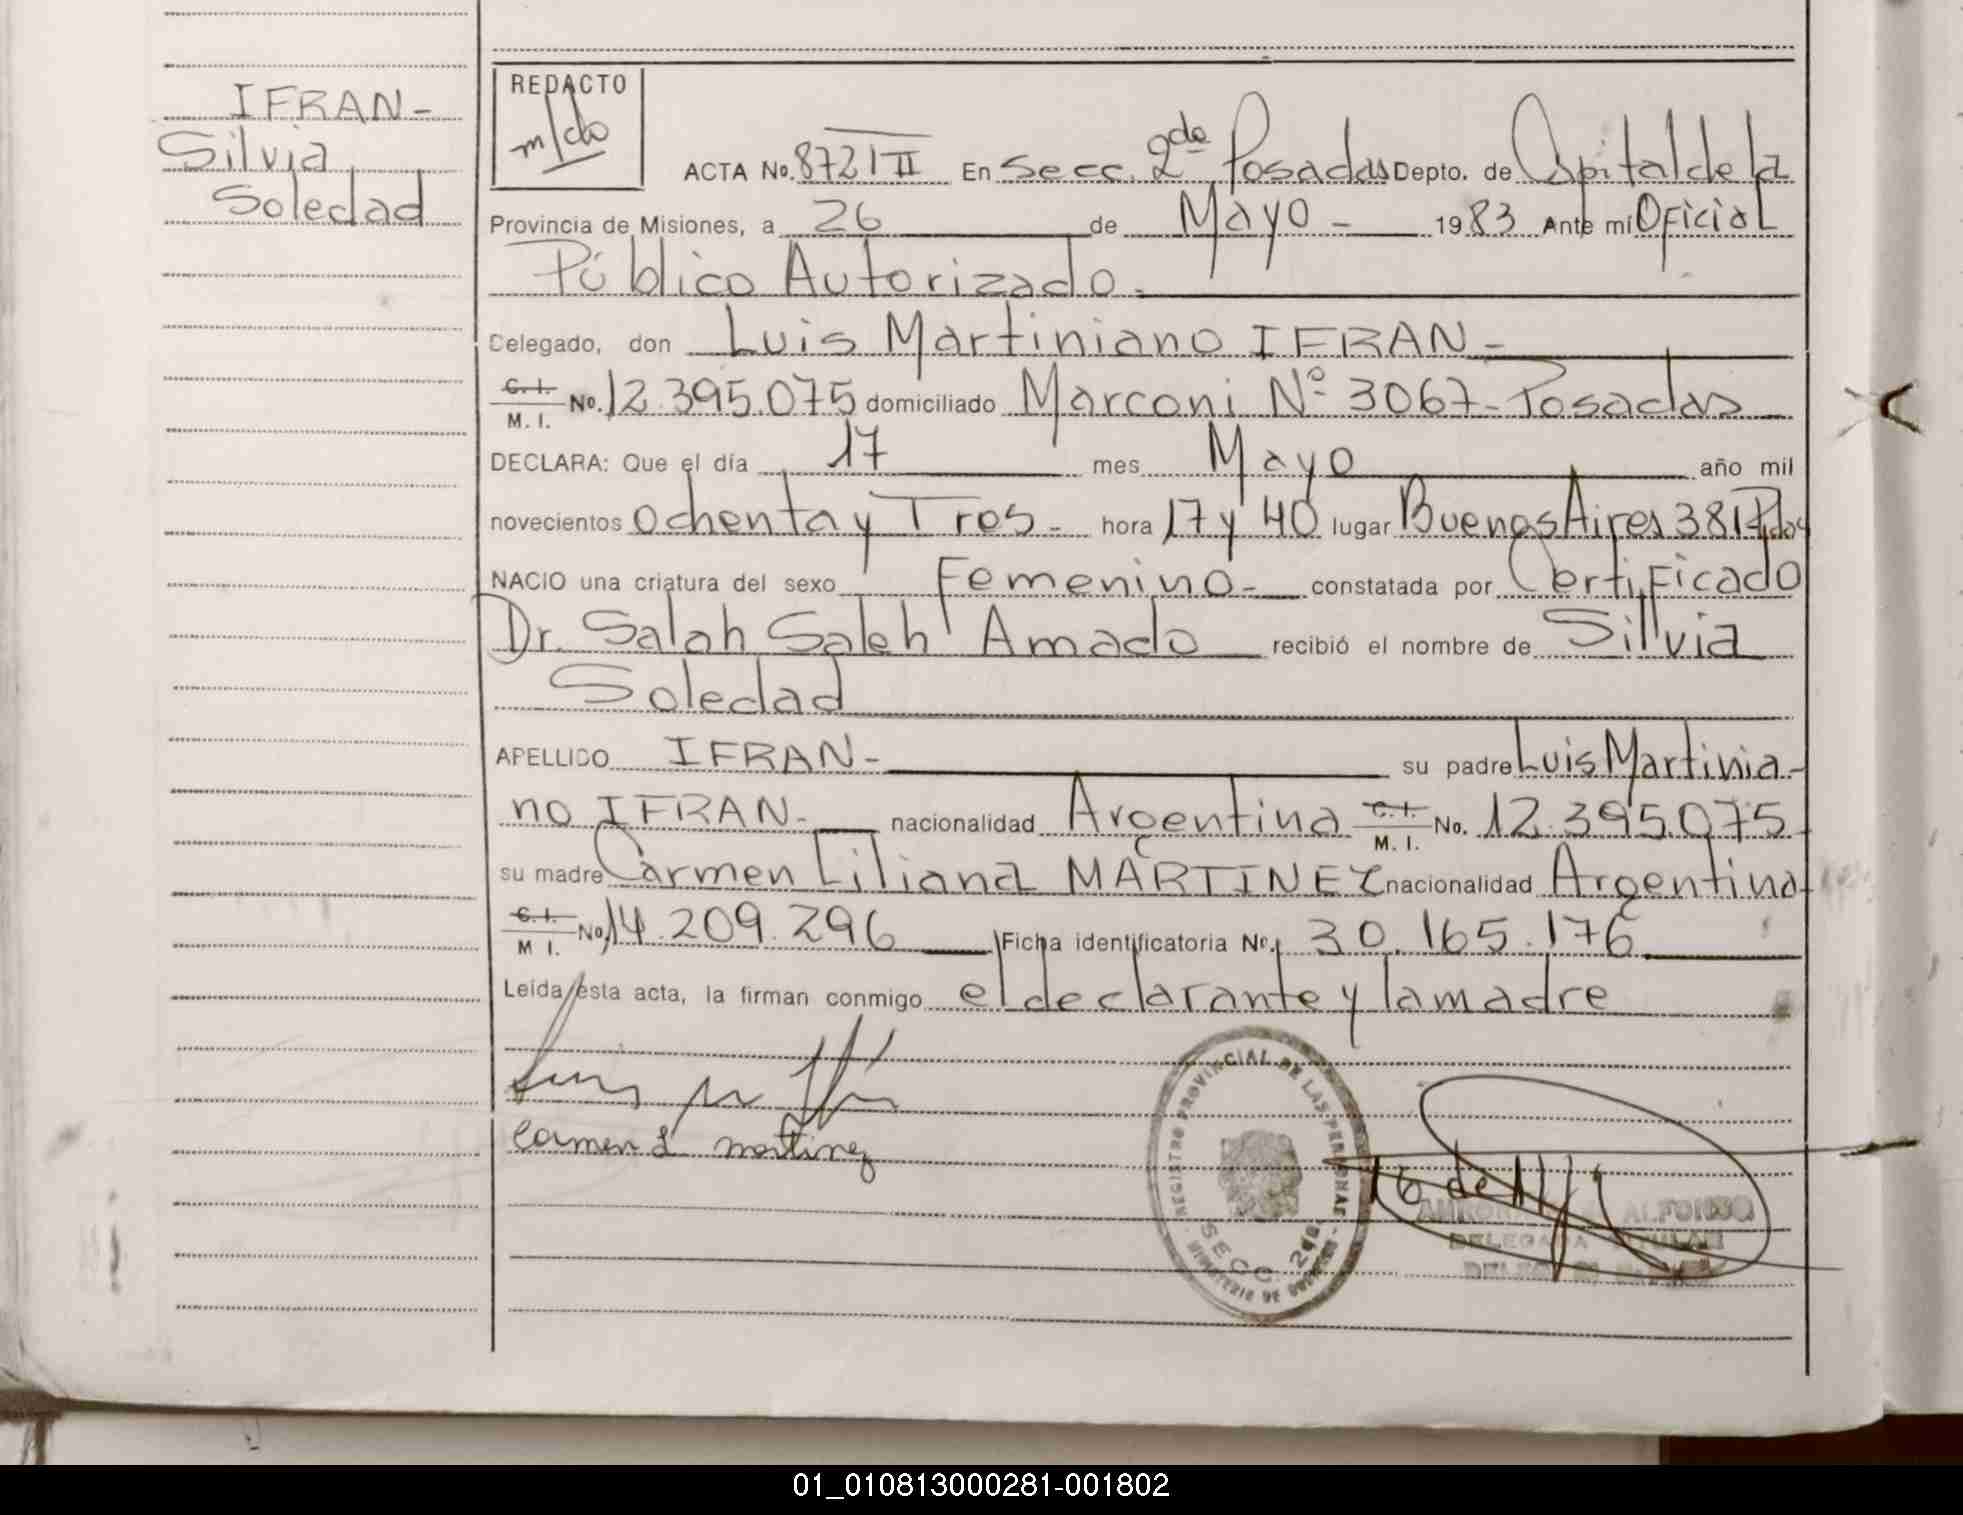 IFRAN-
Silvia
Soledad
REDACTO
ACTA No. 872 I II En Secc. 2da Posadas Depto. de Capital de la
Provincia de Misiones, a 26 de Mayo - 1983 Ante mí Oficial
Público Autorizado.-
Delegado, don Luis Martiniano IFRAN-
C. I. M. I. No. 12.395.075 domiciliado Marconi Nº 3067- Posadas
DECLARA: Que el día 17 mes Mayo año mil
novecientos ochenta y Tres- hora 17 y 40 lugar Buenos Aires 381 Pdas
NACIO una criatura del sexo Femenino- constatada por Certificado
Dr. Salah Saleh Amado recibió el nombre de Silvia
Soledad
APELLIDO IFRAN- su padre Luis Martinia-
no IFRAN.- nacionalidad Argentina C. I. M. I. No. 12.395.075
su madre Carmen Liliana MARTINEZ nacionalidad Argentina
C. I. M I. No. 14.209.296 Ficha identificatoria Nº. 30.165.176
Leída esta acta, la firman conmigo el declarante y la madre
Carmen L martinez
REGISTRO PROVINCIAL DE LAS PERSONAS
SECC. 2da
MINISTERIO DE GOBIERNO
ALFONSO
DELEGADA TITULAR
01_010813000281-001802